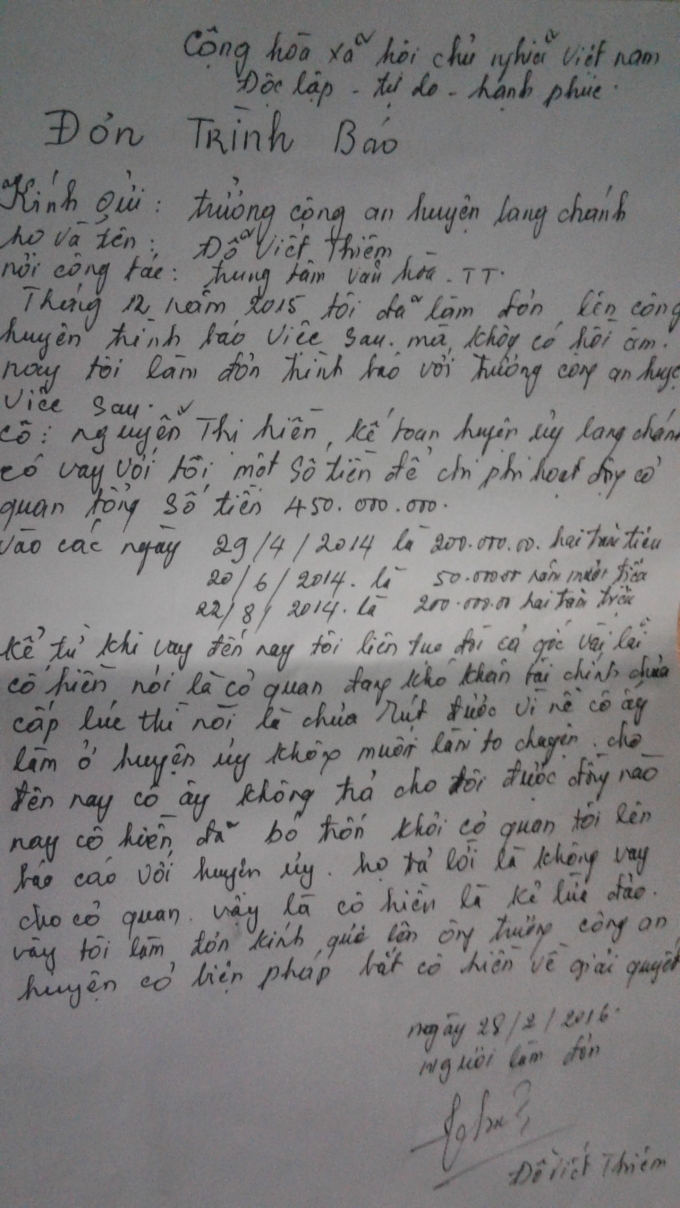 Cộng hòa xã hội chủ nghĩa Việt nam
Độc lập - tự do - hạnh phúc.
ĐƠN TRÌNH BÁO
Kính gửi: trưởng công an huyện lang chánh
họ và tên: Đỗ Viết Thiêm
nơi công tác: trung tâm văn hóa - TT.
Tháng 12 năm 2015 tôi đã làm đơn lên công
huyện trình báo việc sau. mà không có hồi âm.
nay tôi làm đơn trình báo với trưởng công an huyệ
việc sau.
cô: nguyễn Thị hiền, kế toan huyện ủy lang chánh
có vay với tôi một số tiền để chi phí hoạt động cơ
quan tổng số tiền 450.000.000.
vào các ngày 29/4/2014 là 200.000.00. hai trăm triệu
20/6/2014. là 50.000.00 năm mươi triệu
22/8/2014. là 200.000.00 hai trăm triệu
kể từ khi vay đến nay tôi liên tục đòi cả gốc và lãi
cô hiền nói là cơ quan đang khó khăn tài chính chưa
cấp lúc thì nói là chưa rút được vì nể cô ấy
làm ở huyện ủy không muốn làm to chuyện. cho
đến nay cô ấy không trả cho tôi được đồng nào
nay cô hiền đã bỏ trốn khỏi cơ quan tôi lên
báo cáo với huyện ủy. họ trả lời là không vay
cho cơ quan. vậy là cô hiền là kẻ lừa đảo.
vậy tôi làm đơn kính lên ông trưởng công an
huyện có biện pháp bắt cô hiền về giải quyết
ngày 28/2/2016.
người làm đơn
Đỗ Viết Thiêm